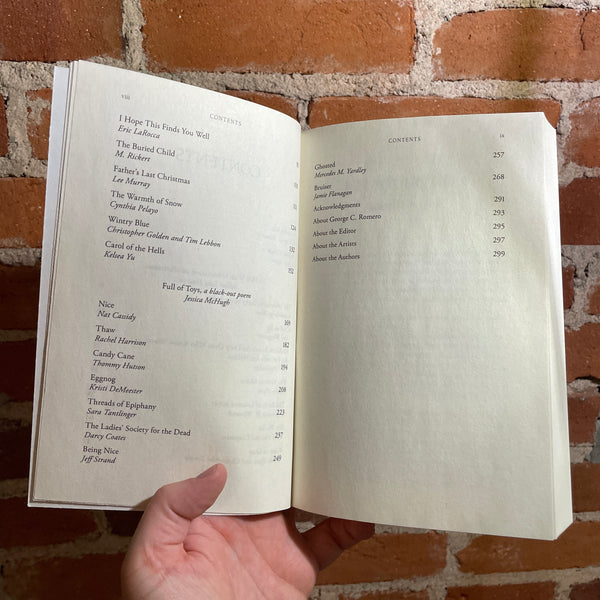 viii
CONTENTS
I Hope This Finds You Well
Eric LaRocca
The Buried Child
M. Rickert
Father's Last Christmas 101
Lee Murray
The Warmth of Snow 111
Cynthia Pelayo
Wintry Blue 124
Christopher Golden and Tim Lebbon
Carol of the Hells 132
Kelsea Yu
152
Full of Toys, a black-out poem
Jessica McHugh
Nice 169
Nat Cassidy
Thaw 182
Rachel Harrison
Candy Cane 194
Thommy Hutson
Eggnog 208
Kristi DeMeester
Threads of Epiphany 223
Sara Tantlinger
The Ladies' Society for the Dead 237
Darcy Coates
Being Nice 249
Jeff Strand
CONTENTS
ix
Ghosted 257
Mercedes M. Yardley
Bruiser 268
Jamie Flanagan
Acknowledgments 291
About George C. Romero 293
About the Editor 295
About the Artists 297
About the Authors 299